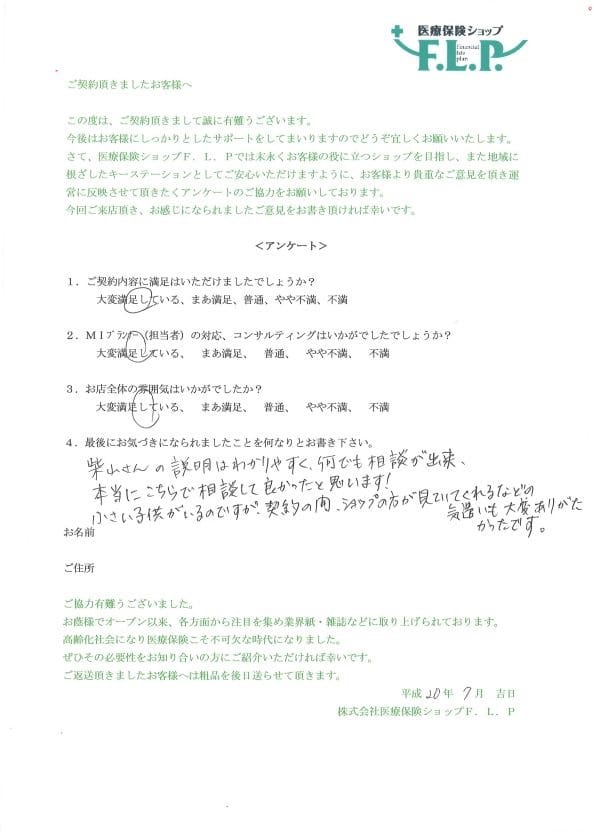 医療保険ショップ
F.L.P.
financial
life
plan
ご契約頂きましたお客様へ
この度は、ご契約頂きまして誠に有難うございます。
今後はお客様にしっかりとしたサポートをしてまいりますのでどうぞ宜しくお願いいたします。
さて、医療保険ショップF．L．Pでは末永くお客様の役に立つショップを目指し、また地域に
根ざしたキーステーションとしてご安心いただけますように、お客様より貴重なご意見を頂き運
営に反映させて頂きたくアンケートのご協力をお願いしております。
今回ご来店頂き、お感じになられましたご意見をお書き頂ければ幸いです。
＜アンケート＞
１．ご契約内容に満足はいただけましたでしょうか？
大変満足している、まあ満足、普通、やや不満、不満
２．MIﾌﾟﾗﾝﾅｰ（担当者）の対応、コンサルティングはいかがでしたでしょうか？
大変満足している、　まあ満足、　普通、　やや不満、　不満
３．お店全体の雰囲気はいかがでしたか？
大変満足している、　まあ満足、　普通、　やや不満、　不満
４．最後にお気づきになられましたことを何なりとお書き下さい。
柴山さんの説明はわかりやすく、何でも相談が出来、
本当にこちらで相談して良かったと思います!
小さい子供がいるのですが、契約の間、ショップの方が見ていてくれるなどの
気遣いも大変ありがた
かったです。
お名前
ご住所
ご協力有難うございました。
お蔭様でオープン以来、各方面から注目を集め業界紙・雑誌などに取り上げられております。
高齢化社会になり医療保険こそ不可欠な時代になりました。
ぜひその必要性をお知り合いの方にご紹介いただければ幸いです。
ご返送頂きましたお客様へは粗品を後日送らせて頂きます。
平成 20 年 7 月　吉日
株式会社医療保険ショップF．L．P